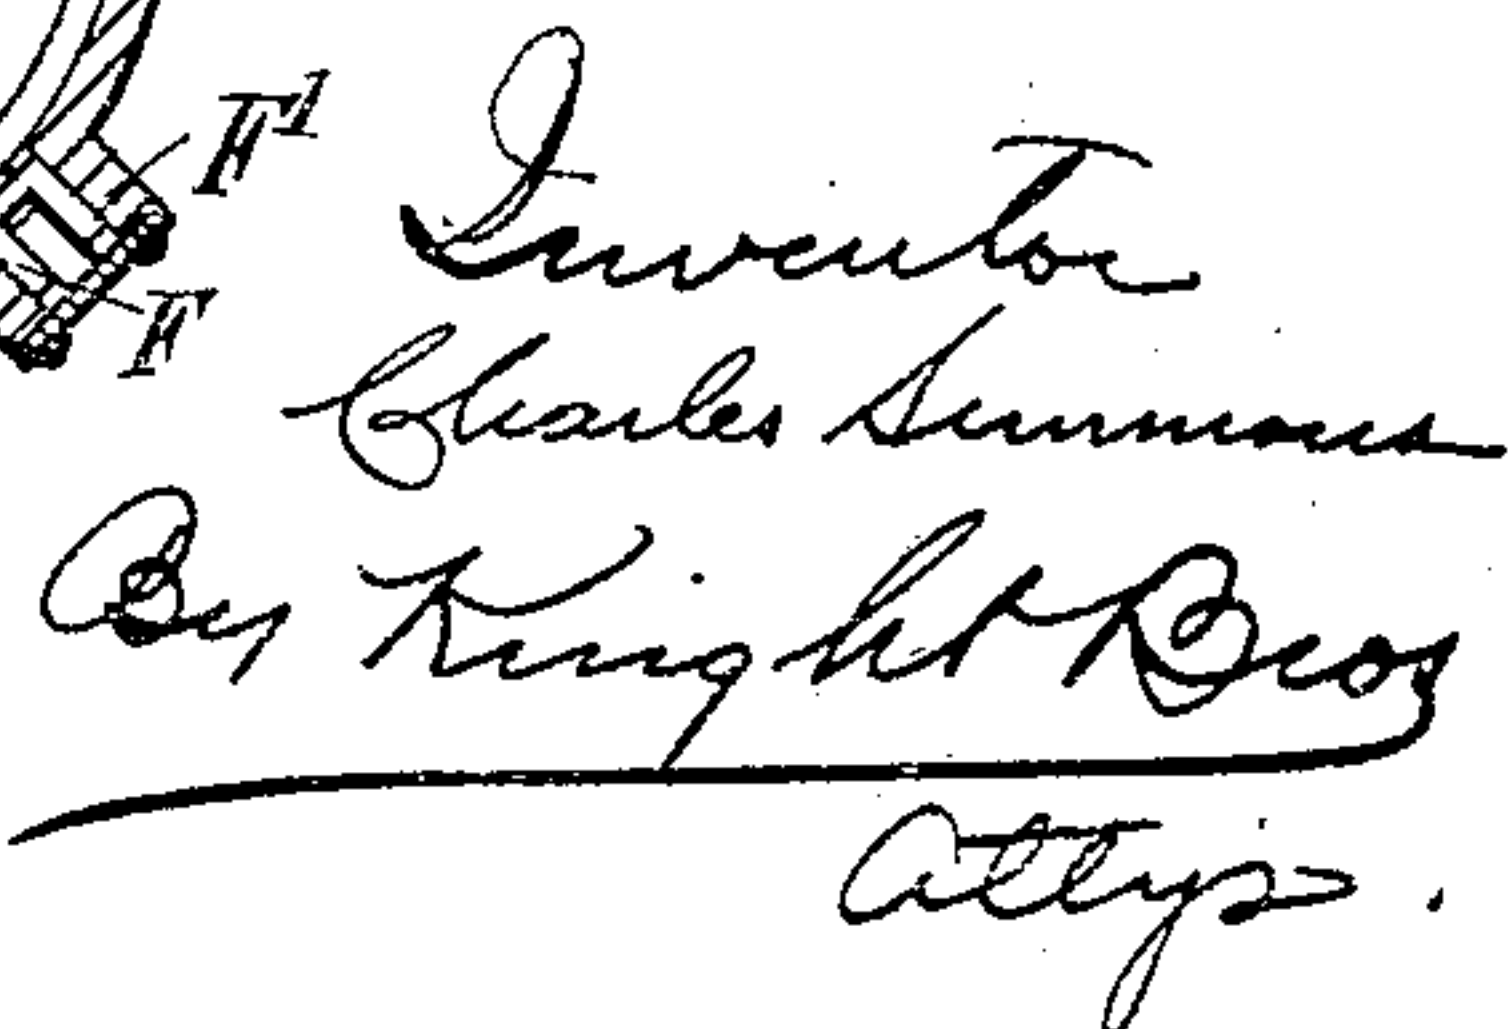 F¹
F
Inventor
Charles Simmons
By Knight Bros
Attys.